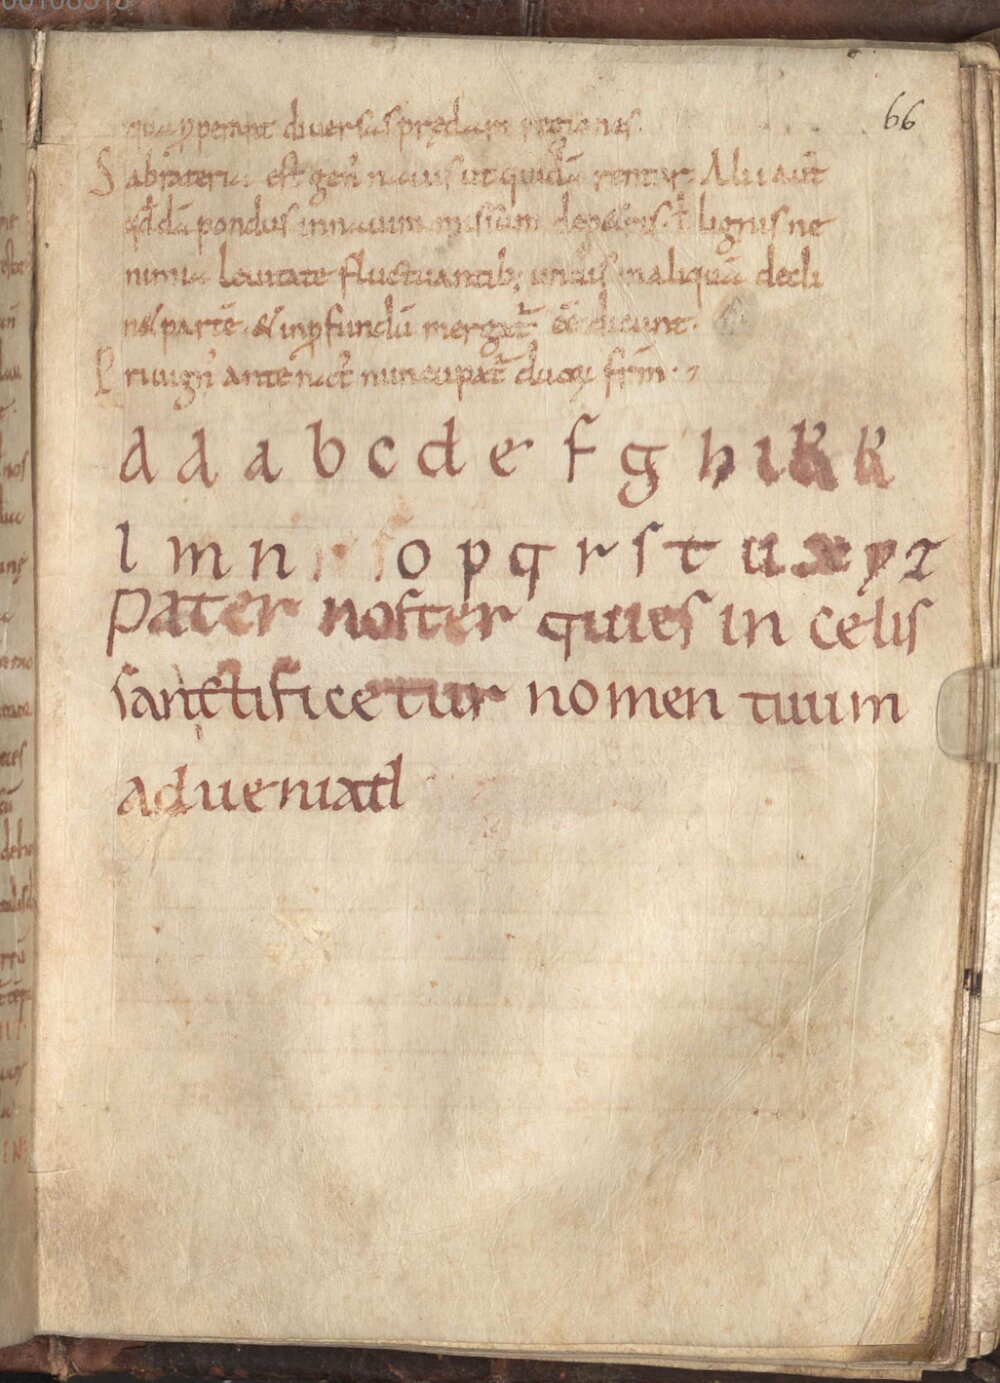 66
diuersas prędari regiones.
Sabrateria est gen̄ nauis ut quidā rentur. Alii aut̄
qđdā pondus in nauim missum de petris ł lignis ne
nimia leuitate fluctuantib; undis in aliquā decli
net partē. & in ꝓfundū mergat̄ ēē dicunt.
Priuign̄ ante nat̄ nuncupat̄ duoꝝ frm̄.
a a a b c d e f g h i k k
l m n o p q r s t u x y z
Pater noster qui es in celis
sanctificetur nomen tuum
adueniat